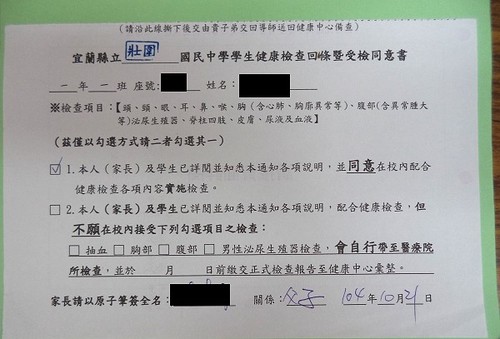 (請沿此線撕下後交由貴子弟交回導師送回健康中心備查)
宜蘭縣立 壯圍 國民中學學生健康檢查回條暨受檢同意書
一 年 一 班 座號: 姓名:
※檢查項目:【頭、頸、眼、耳、鼻、喉、胸(含心肺、胸廓異常等)、腹部(含異常腫大
等)泌尿生殖器、脊柱四肢、皮膚、尿液及血液】
(茲僅以勾選方式請二者勾選其一)
☑ 1.本人(家長)及學生已詳閱並知悉本通知各項說明,並同意在校內配合
健康檢查各項內容實施檢查。
□ 2.本人(家長)及學生已詳閱並知悉本通知各項說明,配合健康檢查,但
不願在校內接受下列勾選項目之檢查:
□ 抽血 □ 胸部 □ 腹部 □ 男性泌尿生殖器檢查,會自行帶至醫療院
所檢查,並於 月 日前繳交正式檢查報告至健康中心彙整。
家長請以原子筆簽全名: 關係:父子 104年10月21日